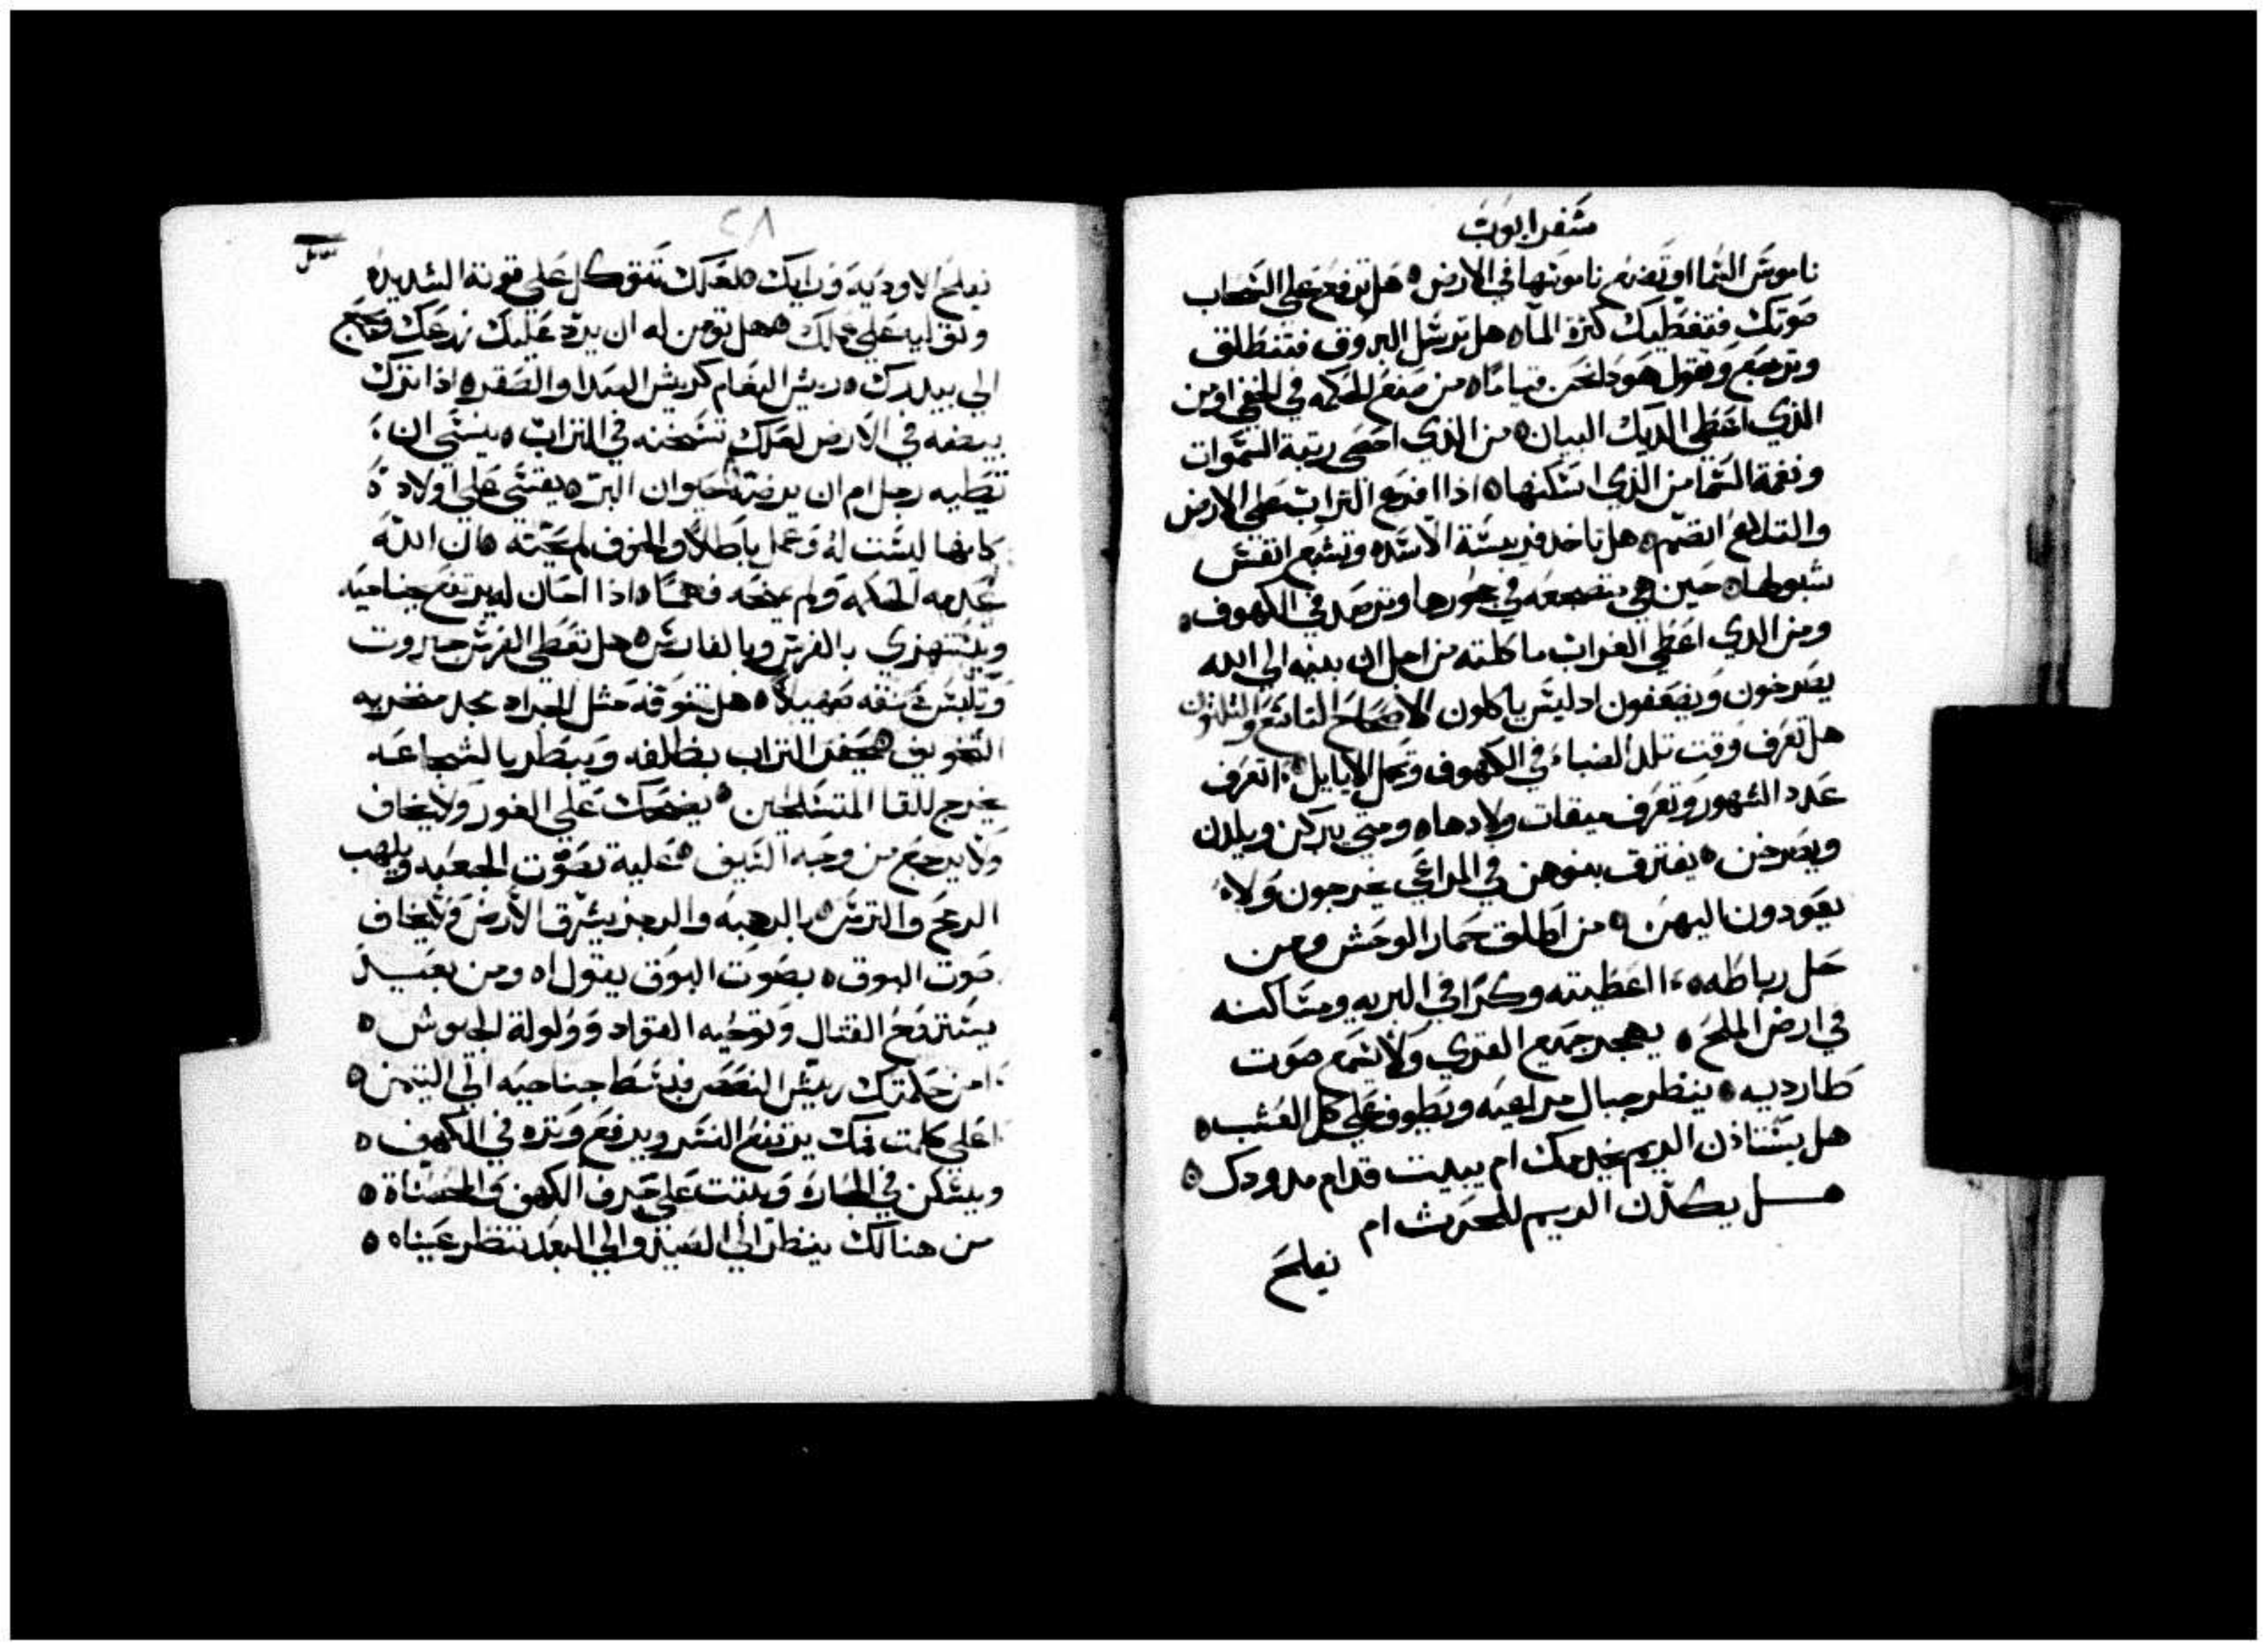 سفر ايوب
ناموس السما او تصنع ناموسها في الارض ه هل ترفع على السحاب
صوتك فتغطيك كثرة الماء ه هل ترسل البروق فتنطلق
وترجع وتقول هودا نحن قياما ه من صنع الحكمه في الخفي او من
الذي اعطى الديك البيان ه من الذي احصى رتبة السموات
ونغمة السما من الذي اسكنها ه اذا افرع التراب على الارض
والتلاع انضم ه هل تاخد فريسة الاسد ه وتشبع انفس
شبولها ه حين هي متضجعه في جحورها وترصد في الكهوف ه
ومن الدي اعطى الغراب ماكلته من اجل ان بنيه الى الله
يصرخون ويضعفون اد ليس ياكلون الاصحاح التاسع والثلثون
هل تعرف وقت تلد الضباء في الكهوف وتحبل الايايل ه اتعرف
عدد الشهور وتعرف ميقات ولادها ه ومتى يبركن ويلدن
ويصرخن ه يفترق بنوهن في المراعي يخرجون ولا
يعودون اليهن ه من اطلق حمار الوحش ومن
حل رباطه ه ااعطيته وكرا في البريه ومساكنه
في ارض الملح ه يهجر جميع القرى ولا يسمع صوت
طارديه ه ينظر جبال مراعيه ويطوف على كل العشب ه
هل يستاذن الريم يخدمك ام يبيت قدام مدودك ه
هل يكدن الريم للحرث ام
يفلح
٢٨
يفلح الاوديه وراك ه لعلك تتوكل على قوته الشديده
وتوليه على عملك ه هل تومن له ان يرد عليك زرعك ويجمع
الى بيدرك ه ريش النعام كريش البدا والصقر ه اذا تترك
بيضه في الارض لعلك تسخنه في التراب ه ينسى ان
تطيه رجل ام ان يرضه حيوان البر ه يقسى على اولاده
كانها ليست له وعمل باطلا والخوف لم يحته ه ان الله
عدمه الحكمه ولم يمنحه فهما ه اذا احان له يرتفع جناحيه
ويستهزي بالفرس وبالفارس ه هل تعطي الفرس جبروت
وتلبس عنقه تصهيلا ه هل تخوفه مثل الجراد مجد منخريه
التخويف ه يحفر التراب بظلفه ويبطر بالشجاعه
يخرج للقا المتسلحين ه يضحك على الخور ولا يخاف
ولا يرجع من وجه السيف ه عليه تصوت الجعبه ويلهب
الرمح والترس ه بالرهبه والرجز يسرق الارض ولا يخاف
صوت البوق ه بصوت البوق يقول اه ومن بعيد
يستروح القتال وتوحيه القواد وولولة الجيوش ه
امن حكمتك ريش النصر فبسط جناحيه الى التيمن ه
اعلى كلمت فمك يرتفع النسر ويرفع وكره في الكهف ه
ويسكن في الحجاره ويبتت على جرف الكهف والحصناة ه
من هنالك ينظر الى الصيد والى البعد تنظر عيناه ه